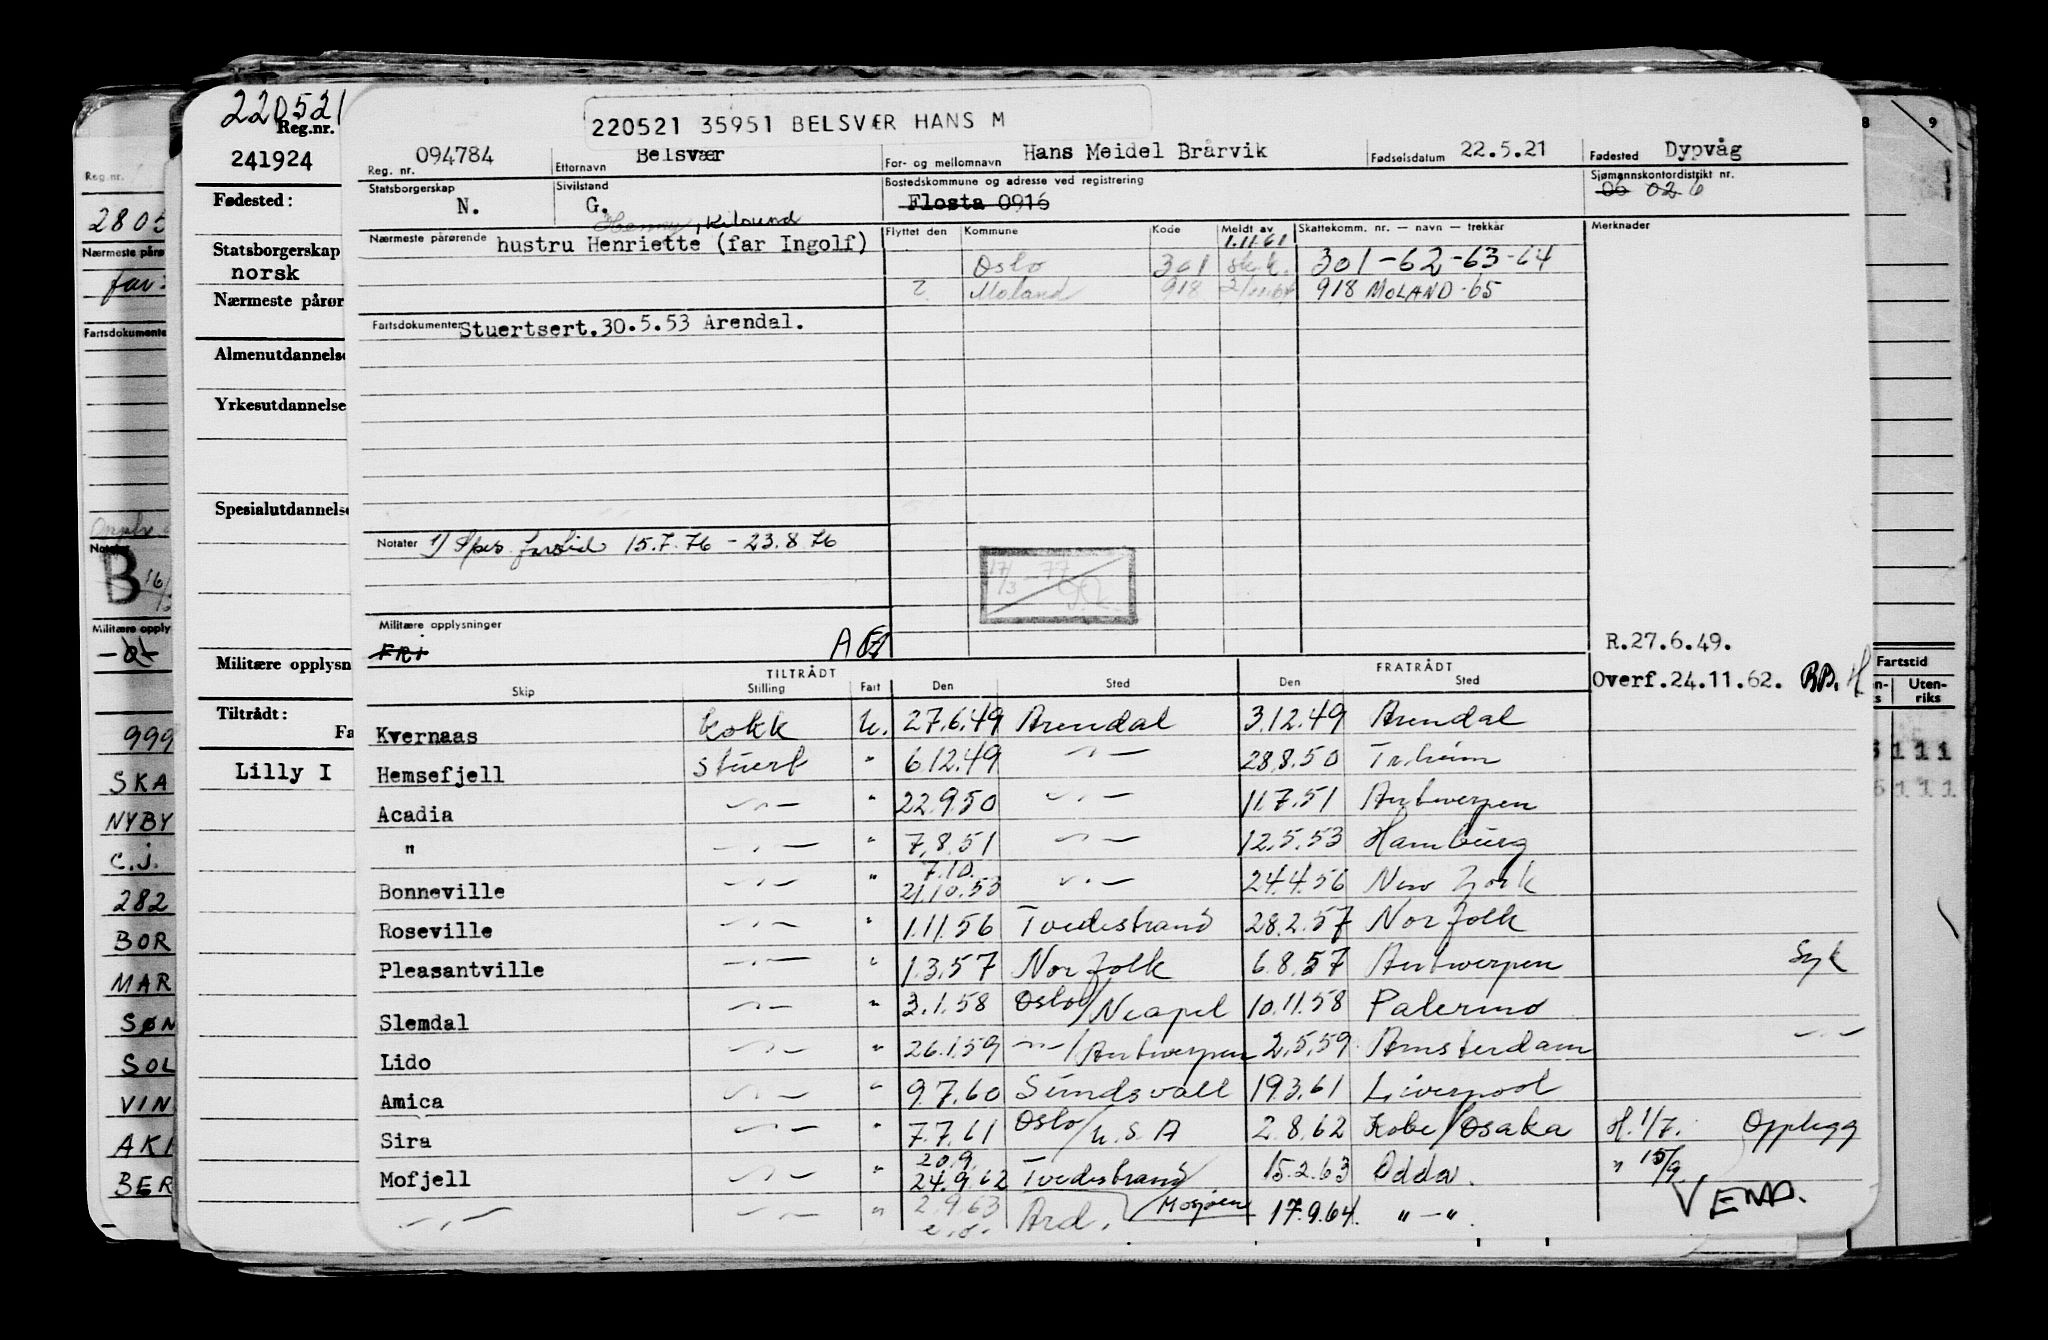 220521 35951 BELSVÆR HANS M
220521
Reg.nr.
241924
Fødested:
Statsborgerskap
norsk
Nærmeste pårør
Almenutdannelse
Yrkesutdannelse
Spesialutdannelse
Militære opplysn
Tiltrådt:
Fa
Lilly I
Reg.nr.
2805
Nærmeste pårø
far:
Fartsdokumente
Notater
B
Militære opply
999
SKA
NYBY
C.J.
282
BOR
MAR
SØN
SOL
VIN
AKI
BER
Reg. nr. 094784 Etternavn Belsvær For- og mellomnavn Hans Meidel Brårvik Fødselsdatum 22.5.21 Fødested Dypvåg
Statsborgerskap N. Sivilstand G. Bostedskommune og adresse ved registrering Flosta 0916 Sjømannskontordistrikt nr. 06 026
Henny, Kilsund
Nærmeste pårørende hustru Henriette (far Ingolf) Flyttet den Kommune Kode Meldt av Skattekomm. nr. — navn — trekkår Merknader
1.11.61
Oslo 301 sk.k. 301-62-63-64
Moland 918 918 MOLAND-65
Fartsdokumenter Stuertsert.30.5.53 Arendal.
Notater 1) Spes fartstid 15.7.76 - 23.8.76
17/3-77
Militære opplysninger
FRI
R.27.6.49.
Overf.24.11.62. BB.
TILTRÅDT FRATRÅDT
Skip Stilling Fart Den Sted Den Sted
Kvernaas kokk U. 27.6.49 Arendal 3.12.49 Arendal
Hemsefjell stuert " 6.12.49 —"— 28.8.50 Tr.heim
Acadia —"— " 22.9.50 —"— 11.7.51 Antwerpen
" —"— " 7.8.51 —"— 12.5.53 Hamburg
7.10.
Bonneville —"— " 21.10.53 —"— 24.4.56 New York
Roseville —"— " 1.11.56 Tvedestrand 28.2.57 Norfolk
Pleasantville —"— " 1.3.57 Norfolk 6.8.57 Antwerpen Syk
Slemdal —"— " 3.1.58 Oslo/Neapel 10.11.58 Palermo
Lido —"— " 26.1.59 —"—/Antwerpen 2.5.59 Amsterdam —"—
Amica —"— " 9.7.60 Sundsvall 19.3.61 Liverpool
Sira —"— " 7.7.61 Oslo/U.S.A 2.8.62 Kobe/Osaka H.1/7. Opplegg
20.9.
Mofjell —"— " 24.9.62 Tvedestrand 15.2.63 Odda. " 15/9.
—"— —"— " 2.9.63 Ard./Mosjøen 17.9.64. "—".
VEND.
8 9
Fartstid
Uten-
riks